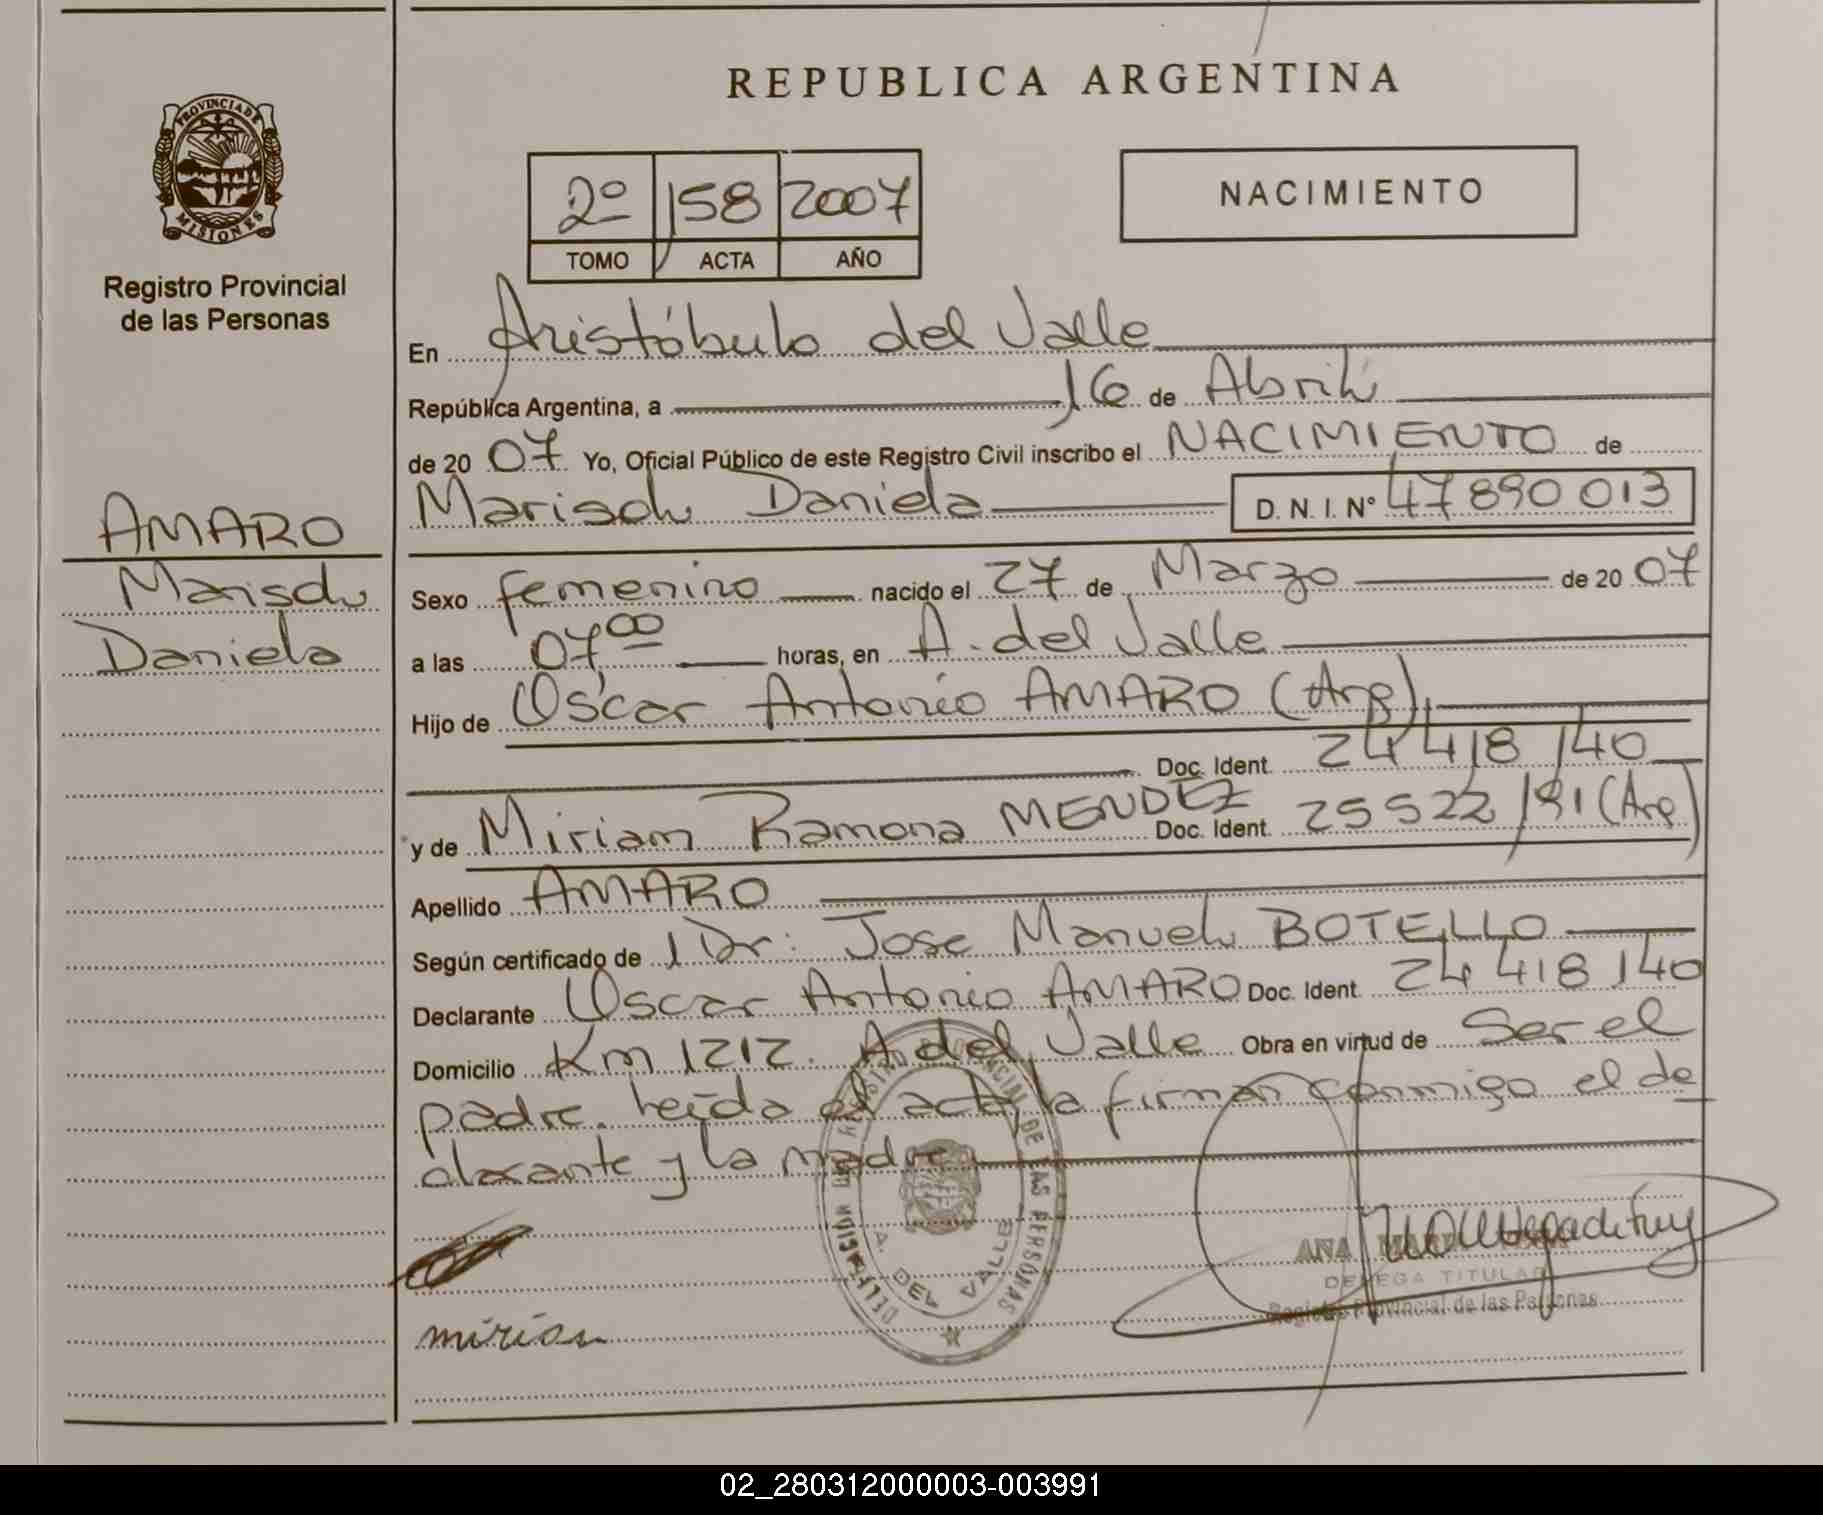 REPUBLICA ARGENTINA
PROVINCIA DE MISIONES
Registro Provincial
de las Personas
2º 158 2007
TOMO ACTA AÑO
NACIMIENTO
En Aristóbulo del Valle
República Argentina, a 16 de Abril
de 20 07 Yo, Oficial Público de este Registro Civil inscribo el NACIMIENTO de
Marisol Daniela D. N. I. Nº 47 890 013
AMARO
Marisol
Daniela
Sexo femenino nacido el 27 de Marzo de 20 07
a las 07 00 horas, en A. del Valle
Hijo de Oscar Antonio AMARO (Arg),
Doc. Ident. 24 418 140
y de Miriam Ramona MENDEZ Doc. Ident. 25 522 191 (Arg)
Apellido AMARO
Según certificado de Dr: Jose Manuel BOTELLO
Declarante Oscar Antonio AMARO Doc. Ident. 24 418 140
Domicilio Km 1212. A del Valle Obra en virtud de Ser el
padre. Leída el acta, la firman conmigo el de
clarante y la madre
DELEGACION DEL REGISTRO PROVINCIAL DE LAS PERSONAS
A. DEL VALLE
ANA
TITULAR
Registro Provincial de las Personas
02_280312000003-003991